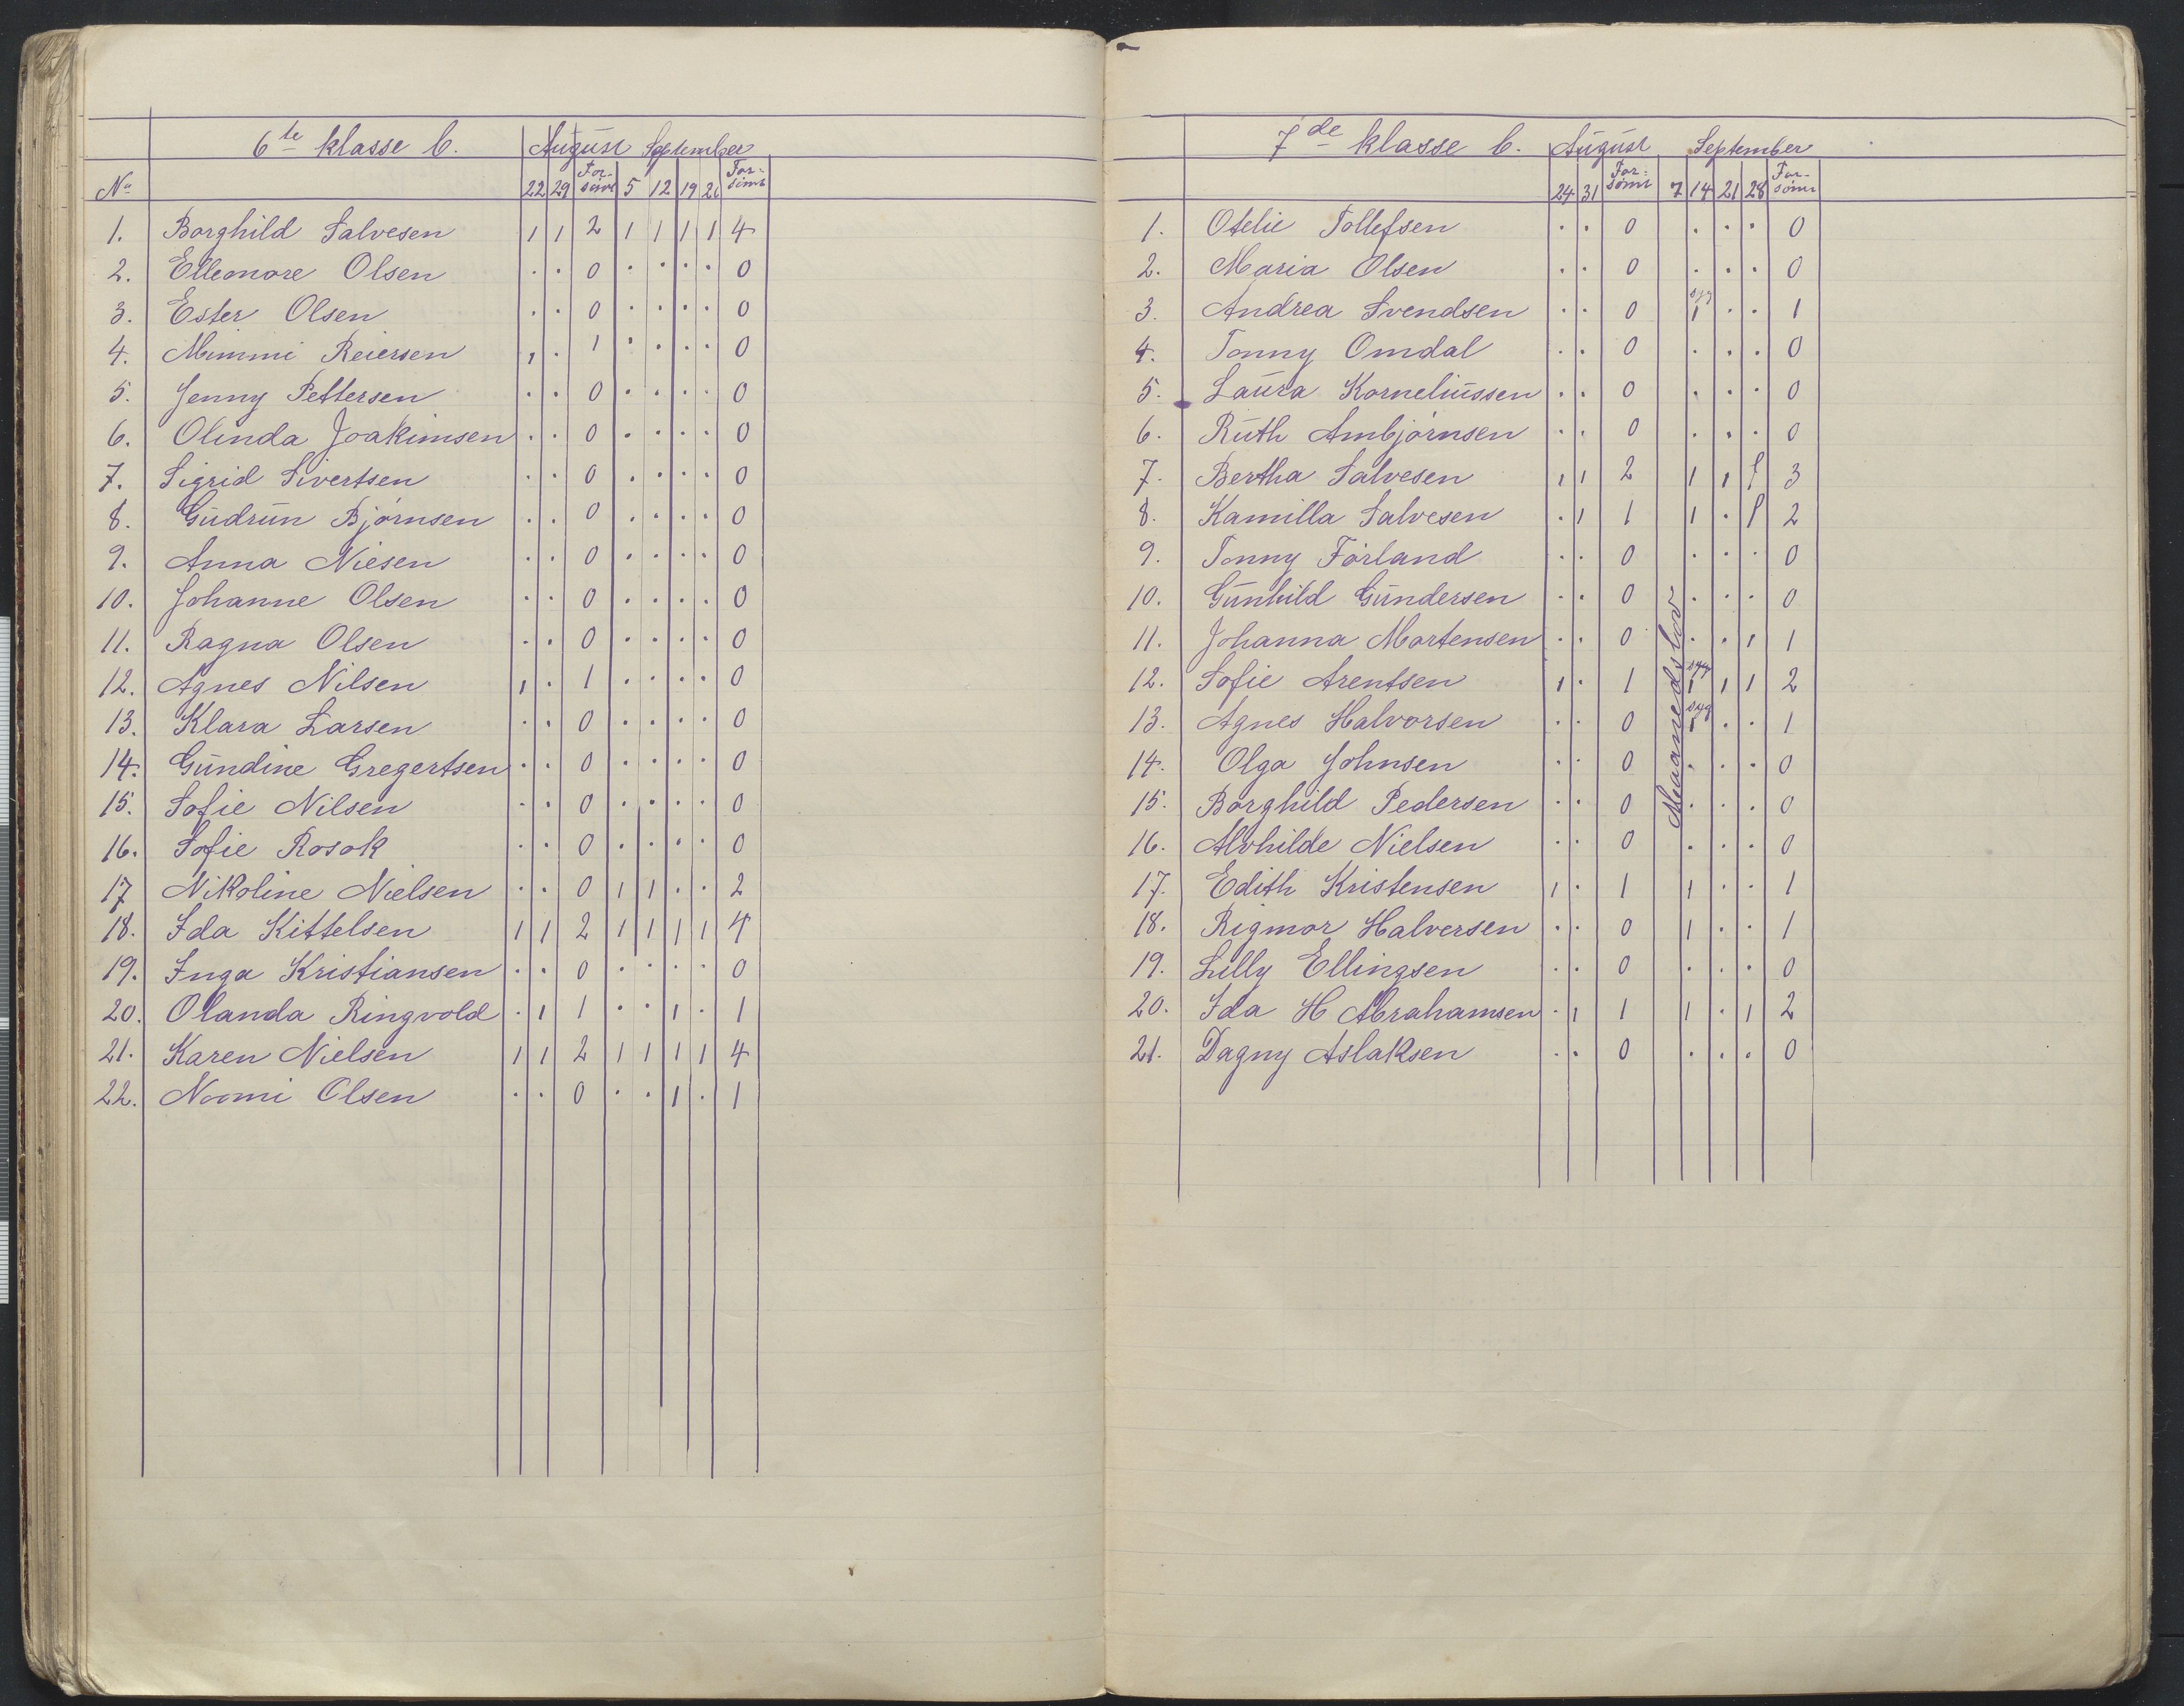 6te klasse b. August September
No 22 29 For- sømt 5 12 19 26 For- sømt
1. Borghild Salvesen 1 1 2 1 1 1 1 4
2. Elleonore Olsen . . 0 . . . . 0
3. Ester Olsen . . 0 . . . . 0
4. Mimmi Reiersen 1 . 1 . . . . 0
5. Jenny Pettersen . . 0 . . . . 0
6. Olinda Joakimsen . . 0 . . . . 0
7. Sigrid Sivertsen . . 0 . . . . 0
8. Gudrun Bjørnsen . . 0 . . . . 0
9. Anna Niesen . . 0 . . . . 0
10. Johanne Olsen . . 0 . . . . 0
11. Ragna Olsen . . 0 . . . . 0
12. Agnes Nilsen 1 . 1 . . . . 0
13. Klara Larsen . . 0 . . . . 0
14. Gundine Gregertsen . . 0 . . . . 0
15. Sofie Nilsen . . 0 . . . . 0
16. Sofie Rosok . . 0 . . . . 0
17 Nikoline Nielsen . . 0 1 1 . . 2
18. Ida Kittelsen 1 1 2 1 1 1 1 4
19. Inga Kristiansen . . 0 . . . . 0
20. Olanda Ringvold . 1 1 . . 1 . 1
21. Karen Nielsen 1 1 2 1 1 1 1 4
22. Noomi Olsen . . 0 . . 1 . 1
7de klasse b. August September
24 31 For- sømt 7 14 21 28 For- sømt
1. Otelie Tollefsen . . 0 . . . 0
2. Maria Olsen . . 0 . . . 0
3. Andrea Svendsen . . 0 syg 1 . . 1
4. Tonny Omdal . . 0 . . . 0
5. Laura Korneliussen . . 0 . . . 0
6. Ruth Ambjørnsen . . 0 . . . 0
7. Bertha Salvesen 1 1 2 1 1 1 3
8. Kamilla Salvesen . 1 1 1 . 1 2
9. Tonny Førland . . 0 . . . 0
10. Gunhild Gundersen . . 0 . . . 0
11. Johanna Mortensen . . 0 . . 1 1
12. Sofie Arentsen 1 . 1 syg 1 1 1 2
13. Agnes Halvorsen . . 0 syg 1 . . 1
14. Olga Johnsen . . 0 . . . 0
15. Borghild Pedersen . . 0 . . . 0
16. Alvhilde Nielsen . . 0 . . . 0
17. Edith Kristensen 1 . 1 1 . . 1
18. Rigmor Halversen . . 0 1 . . 1
19. Lilly Ellingsen . . 0 . . . 0
20. Ida H Abrahamsen . 1 1 1 . 1 2
21. Dagny Aslaksen . . 0 . . . 0
Maanedslov